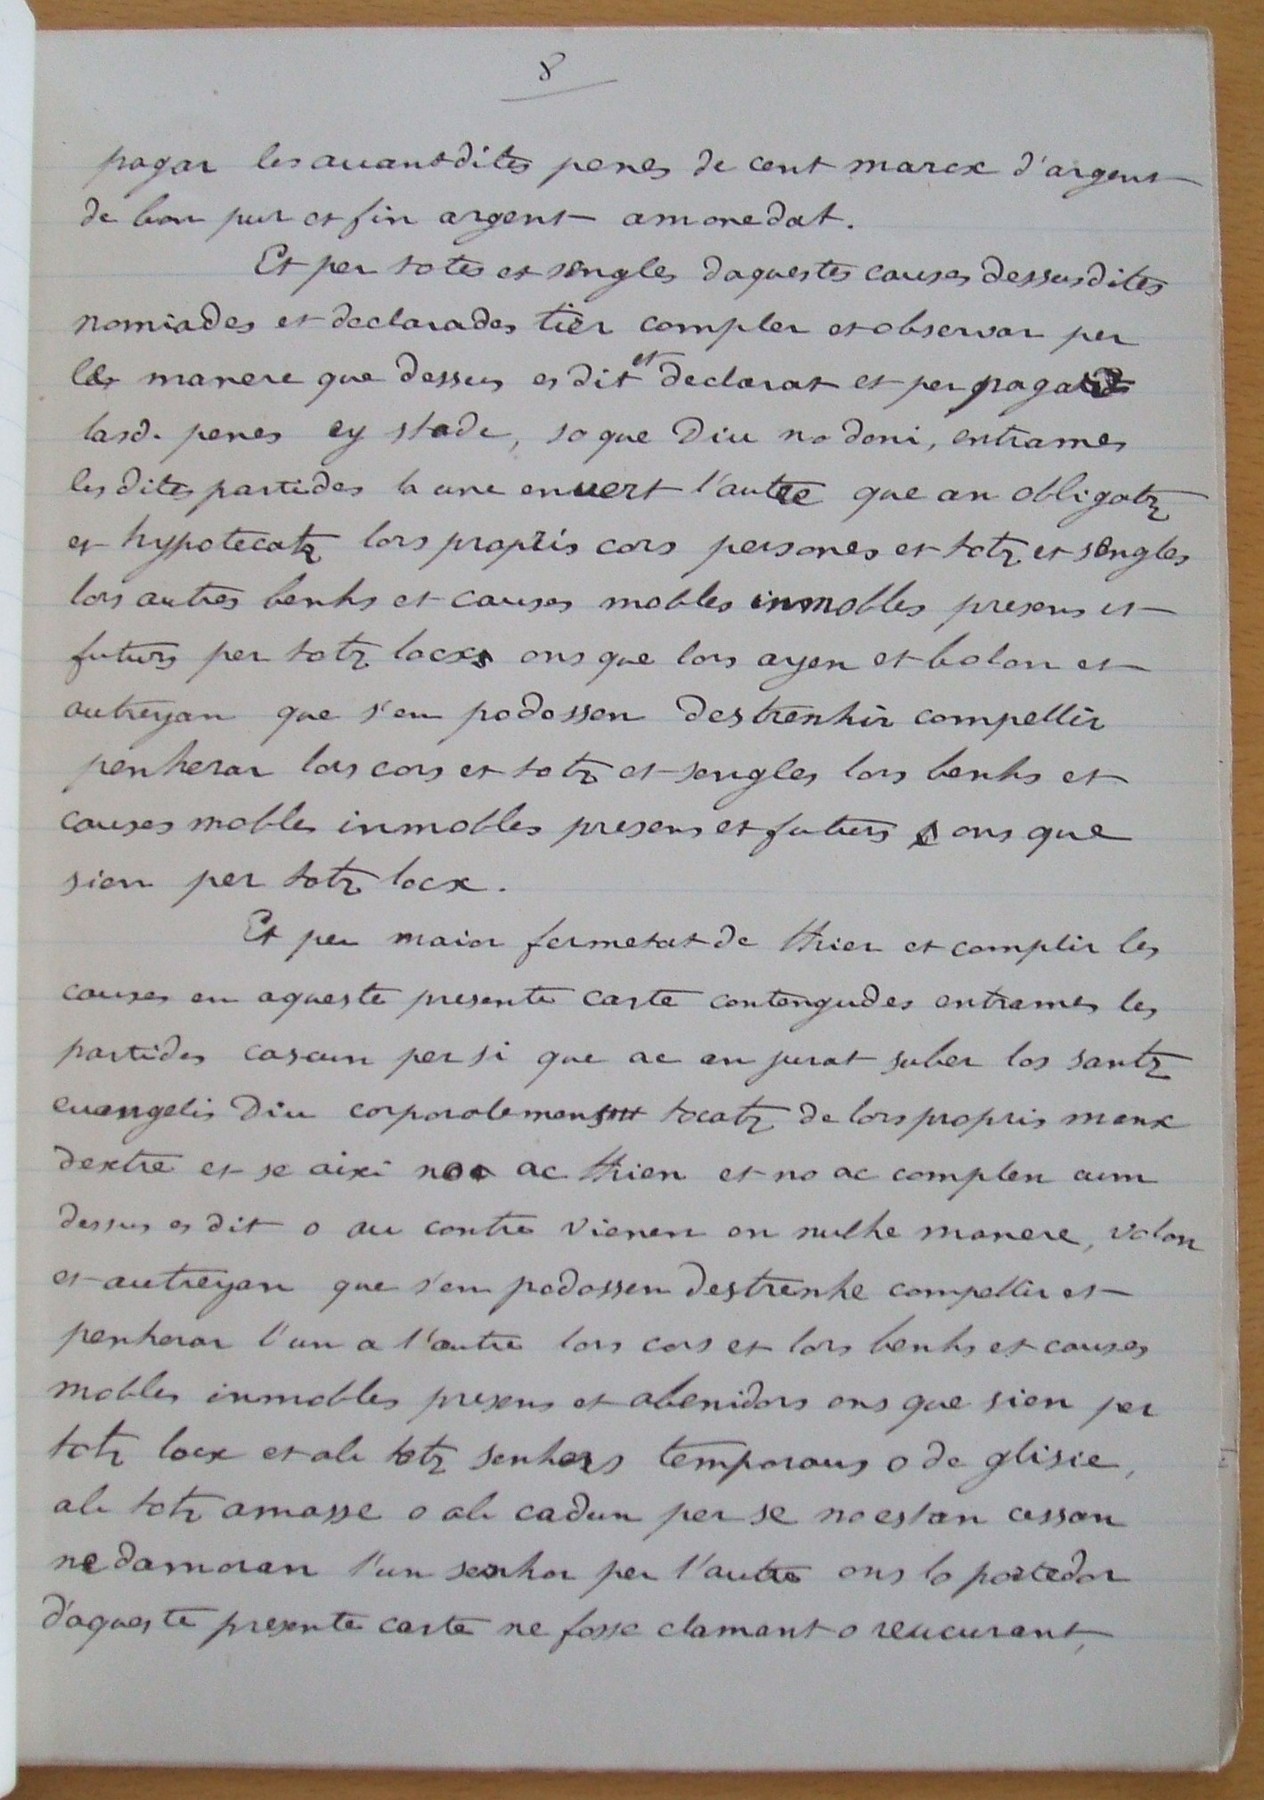 8
pagar les auantdites penes de cent marcx d'argent
de bon pur et fin argent amonedat.
Et per totes et sengles daquestes causes dessusdites
nomiades et declarades tier compler et observar per
le manere que dessus es dit et declarat et per pagar
lasd. penes ey stade, so que Diu no doni, entrames
les dites partides la une enuert l'autre que an obligatz
et hypotecatz lors propris cors persones et totz et sengles
lors autres benhs et causes mobles inmobles presens et
futurs per totz locxs ons que lors ayen et bolon et
autreyan que s'en podossen destrenhir compellir
penherar lors cors et totz et sengles lors benhs et
causes mobles inmobles presens et futurs ons que
sien per totz locx.
Et per maior fermetat de thier et complir les
causes en aqueste presente carte contengudes entrames les
partides cascun per si que ac an jurat suber los santz
euangelis Diu corporalemens tocatz de lors propris manx
dextre et se aixi no ac thien et no ac complen aum
dessus es dit o au contre vienen en nulhe manere, volon
et autreyan que s'en podossen destrenhe compellir et
penherar l'un a l'autre lors cors et lors benhs et causes
mobles inmobles presens et abenidors ons que sien per
totz locx et ab totz senhors temporaus o de glisie,
ab totz amasse o ab cadun per se no estan cessan
ne damoran l'un senhor per l'autre ons lo portedor
d'aqueste presente carte ne fosse clamant o reucurant,